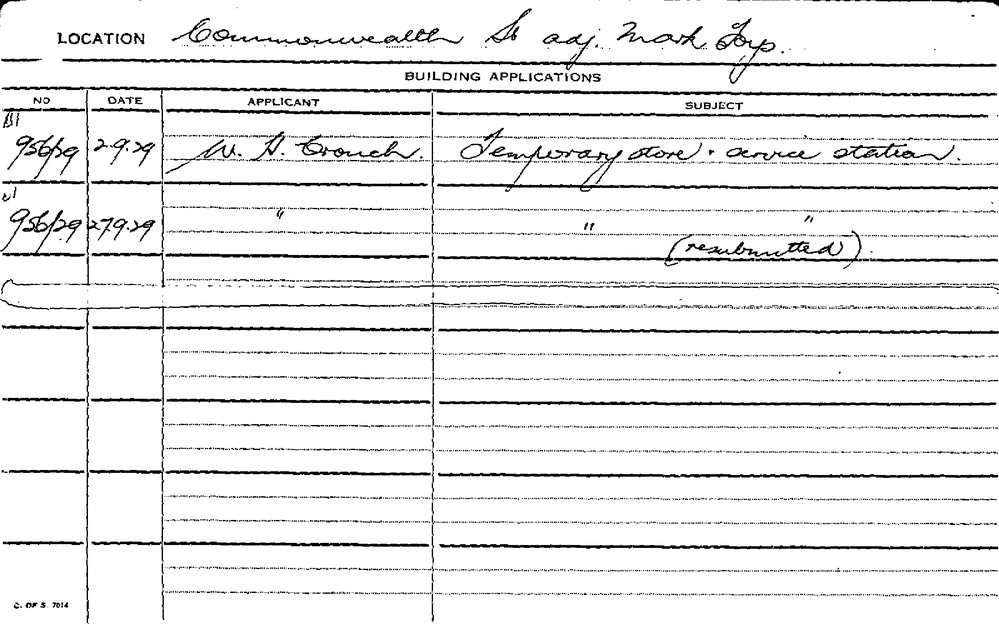 LOCATION Commonwealth St adj. Mark Foys.
BUILDING APPLICATIONS
NO DATE APPLICANT SUBJECT
BI
956/29 2·9·29 W. H. Crouch. Temporary store & service station.
956/29 27·9·29 " " "
(resubmitted).
C. OF S. 7014